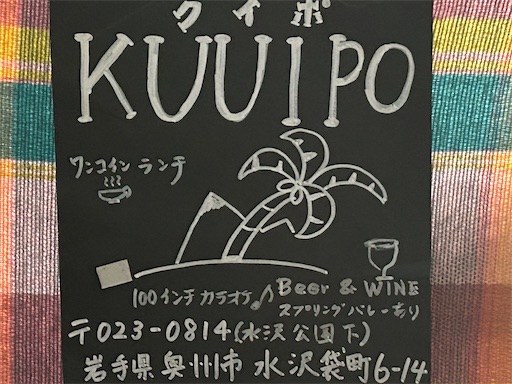 クイポ
KUUIPO
ワンコイン ランチ
100インチ カラオケ♪
Beer & WINE
スプリングバレーあり
〒023-0814(水沢公園下)
岩手県奥州市 水沢袋町6-14